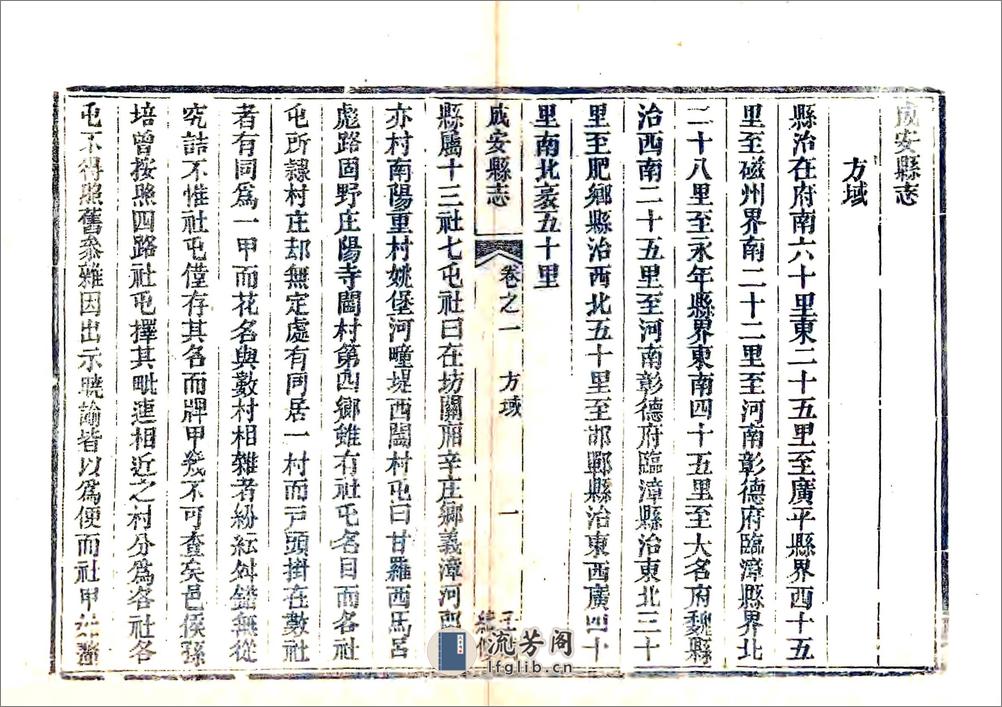 成安縣志
方域
縣治在府南六十里東二十五里至廣平縣界西十五
里至磁州界南二十二里至河南彰德府臨漳縣界北
二十八里至永年縣界東南四十五里至大名府魏縣
治西南二十五里至河南彰德府臨漳縣治東北三十
里至肥鄉縣治西北五十里至邯鄲縣治東西廣四十
里南北袤五十里
成安縣志 卷之一 方域 一
縣屬十三社七屯社曰在坊關廂辛庄鄉義漳河
亦村南陽重村姚堡河疃堤西閻村屯曰甘羅西馬呂
彪路固野庄陽寺閻村第四鄉雖有社屯名目而各社
屯所隸村庄却無定處有同居一村而戸頭掛在數社
者有同爲一甲而花名與數村相雜者紛紜舛錯無從
究詰不惟社屯僅存其名而牌甲幾不可查矣邑侯孫
培曾按照四路社屯擇其毗連相近之村分爲各社各
屯不得照舊參雜因出示曉諭皆以爲便而社甲
流芳阁
lfglib.cn